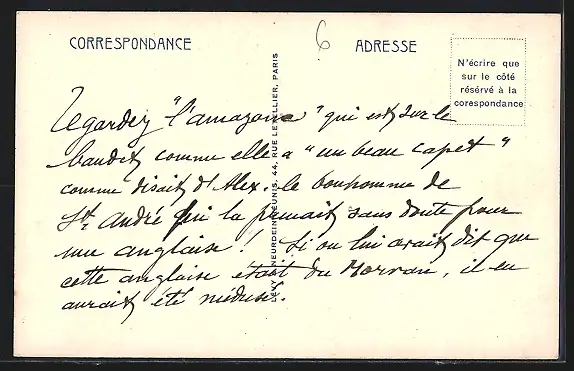 CORRESPONDANCE
6
ADRESSE
N'écrire que
sur le côté
réservé à la
corespondance
LEVY & NEURDEIN RÉUNIS, 44, RUE LETELLIER, PARIS
Regardez "l'amazone" qui est sur le
baudet comme elle a "un beau capet"
comme disait d'Alex. le bonhomme de
St. André qui la prenait sans doute pour
une anglaise! Si on lui avait dit que
cette anglaise était du Morvan, il en
aurait été médusé.